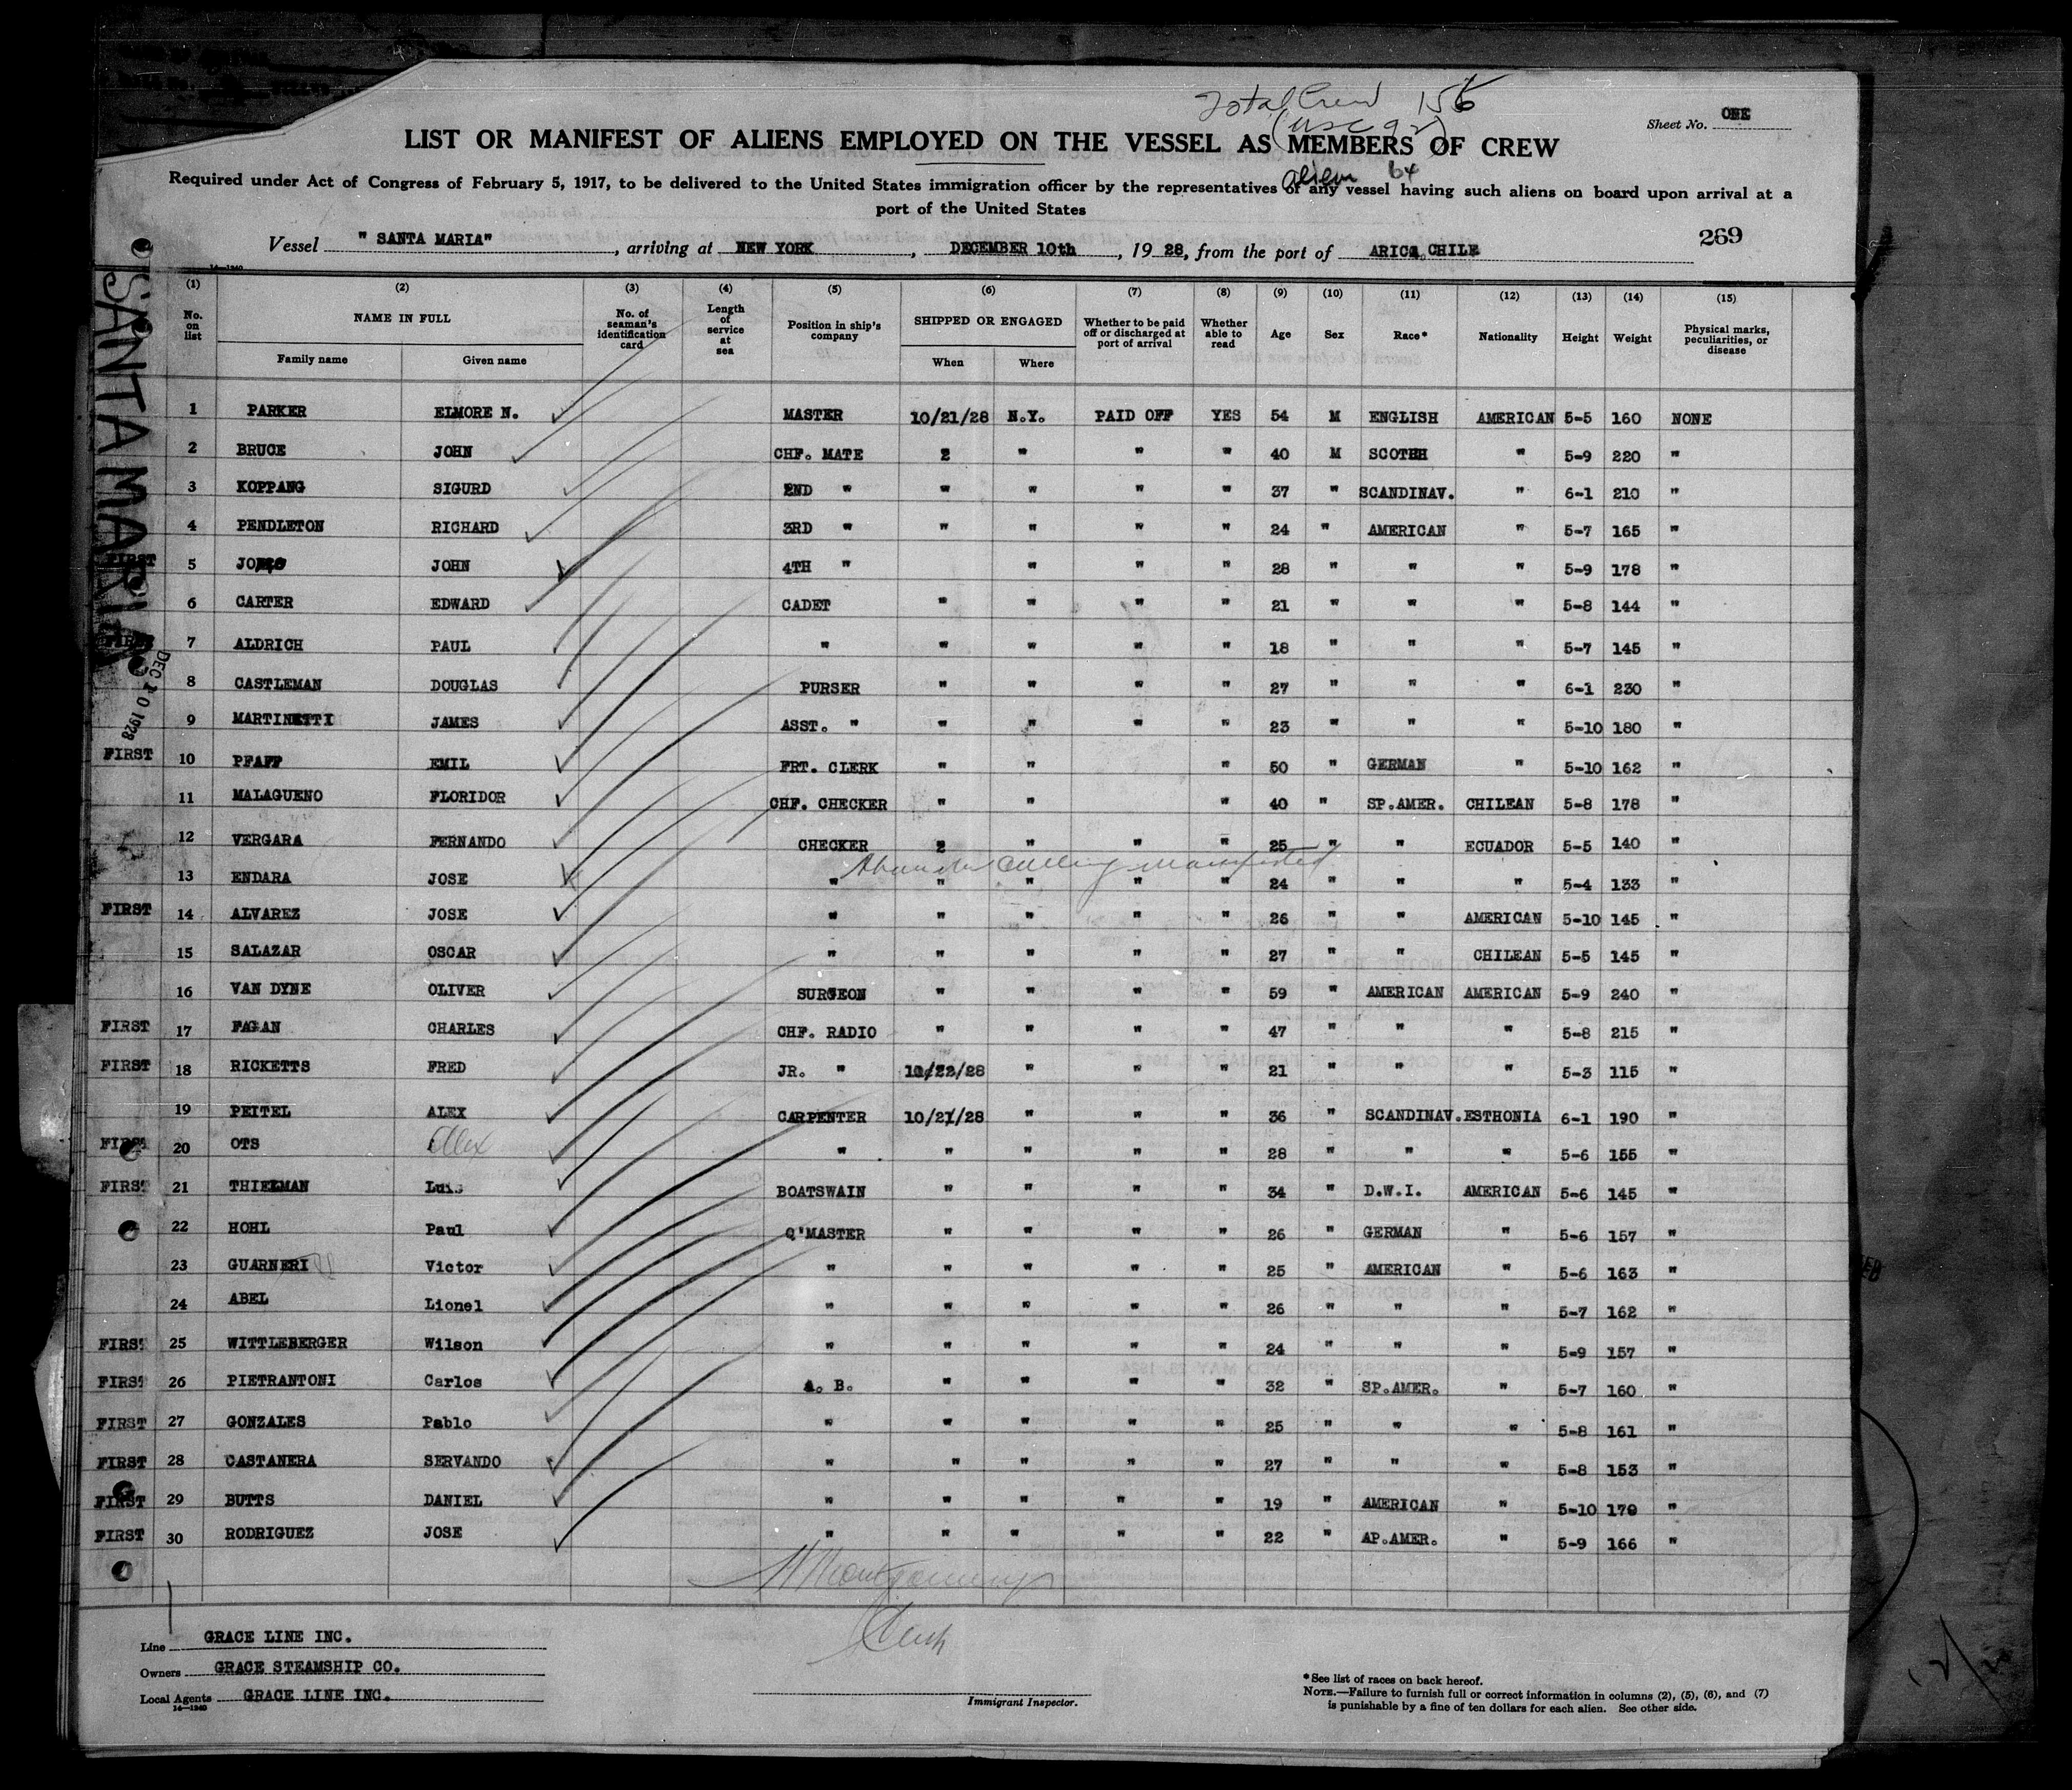 Total Crew 156
(USC 92)
alien 64
Sheet No. ONE
LIST OR MANIFEST OF ALIENS EMPLOYED ON THE VESSEL AS MEMBERS OF CREW
Required under Act of Congress of February 5, 1917, to be delivered to the United States immigration officer by the representatives of any vessel having such aliens on board upon arrival at a
port of the United States
Vessel "SANTA MARIA", arriving at NEW YORK, DECEMBER 10th, 1928, from the port of ARICA, CHILE
269
14—1240
SANTA MARIA
DEC 10 1928
(1) (2) (3) (4) (5) (6) (7) (8) (9) (10) (11) (12) (13) (14) (15)
No. on list NAME IN FULL No. of seaman's identification card Length of service at sea Position in ship's company SHIPPED OR ENGAGED Whether to be paid off or discharged at port of arrival Whether able to read Age Sex Race* Nationality Height Weight Physical marks, peculiarities, or disease
Family name Given name When Where
1 PARKER ELMORE N. MASTER 10/21/28 N.Y. PAID OFF YES 54 M ENGLISH AMERICAN 5-5 160 NONE
2 BRUCE JOHN CHF. MATE " " " " 40 M SCOTCH " 5-9 220 "
3 KOPPANG SIGURD 2ND " " " " " 37 " SCANDINAV. " 6-1 210 "
4 PENDLETON RICHARD 3RD " " " " " 24 " AMERICAN " 5-7 165 "
FIRST 5 JOHN 4TH " " " " 28 " " " 5-9 178 "
6 CARTER EDWARD CADET " " " " 21 " " " 5-8 144 "
FIRST 7 ALDRICH PAUL " " " " " 18 " " " 5-7 145 "
8 CASTLEMAN DOUGLAS PURSER " " " " 27 " " " 6-1 230 "
9 MARTINETTI JAMES ASST. " " " " " 23 " " " 5-10 180 "
FIRST 10 PFAFF EMIL FRT. CLERK " " " 50 " GERMAN " 5-10 162 "
11 MALAGUENO FLORIDOR CHF. CHECKER " " " 40 " SP.AMER. CHILEAN 5-8 178 "
12 VERGARA FERNANDO CHECKER " " " " 25 " " ECUADOR 5-5 140 "
13 ENDARA JOSE " " " " " 24 " " " 5-4 133 "
FIRST 14 ALVAREZ JOSE " " " " " 26 " " AMERICAN 5-10 145 "
15 SALAZAR OSCAR " " " " " 27 " " CHILEAN 5-5 145 "
16 VAN DYNE OLIVER SURGEON " " " " 59 " AMERICAN AMERICAN 5-9 240 "
FIRST 17 FAGAN CHARLES CHF. RADIO " " " " 47 " " " 5-8 215 "
FIRST 18 RICKETTS FRED JR. " 10/22/28 " " " 21 " " " 5-3 115 "
19 PEITEL ALEX CARPENTER 10/21/28 " " " 36 " SCANDINAV. ESTHONIA 6-1 190 "
FIRST 20 OTS Alex " " " " " 28 " " " 5-6 155 "
FIRST 21 THIELMAN Luis BOATSWAIN " " " " 34 " D.W.I. AMERICAN 5-6 145 "
22 HOHL Paul Q'MASTER " " " " 26 " GERMAN " 5-6 157 "
23 GUARNERI Victor " " " " " 25 " AMERICAN " 5-6 163 "
24 ABEL Lionel " " " " " 26 " " " 5-7 162 "
FIRST 25 WITTLEBERGER Wilson " " " " " 24 " " " 5-9 157 "
FIRST 26 PIETRANTONI Carlos A. B. " " " " 32 " SP.AMER. " 5-7 160 "
FIRST 27 GONZALES Pablo " " " " " 25 " " " 5-8 161 "
FIRST 28 CASTANERA SERVANDO " " " " " 27 " " " 5-8 153 "
FIRST 29 BUTTS DANIEL " " " " " 19 " AMERICAN " 5-10 170 "
FIRST 30 RODRIGUEZ JOSE " " " " " 22 " AP.AMER. " 5-9 166 "
Montgomery
Line GRACE LINE INC.
Owners GRACE STEAMSHIP CO.
Local Agents GRACE LINE INC.
14—1240
Immigrant Inspector.
*See list of races on back hereof.
NOTE.—Failure to furnish full or correct information in columns (2), (5), (6), and (7)
is punishable by a fine of ten dollars for each alien. See other side.